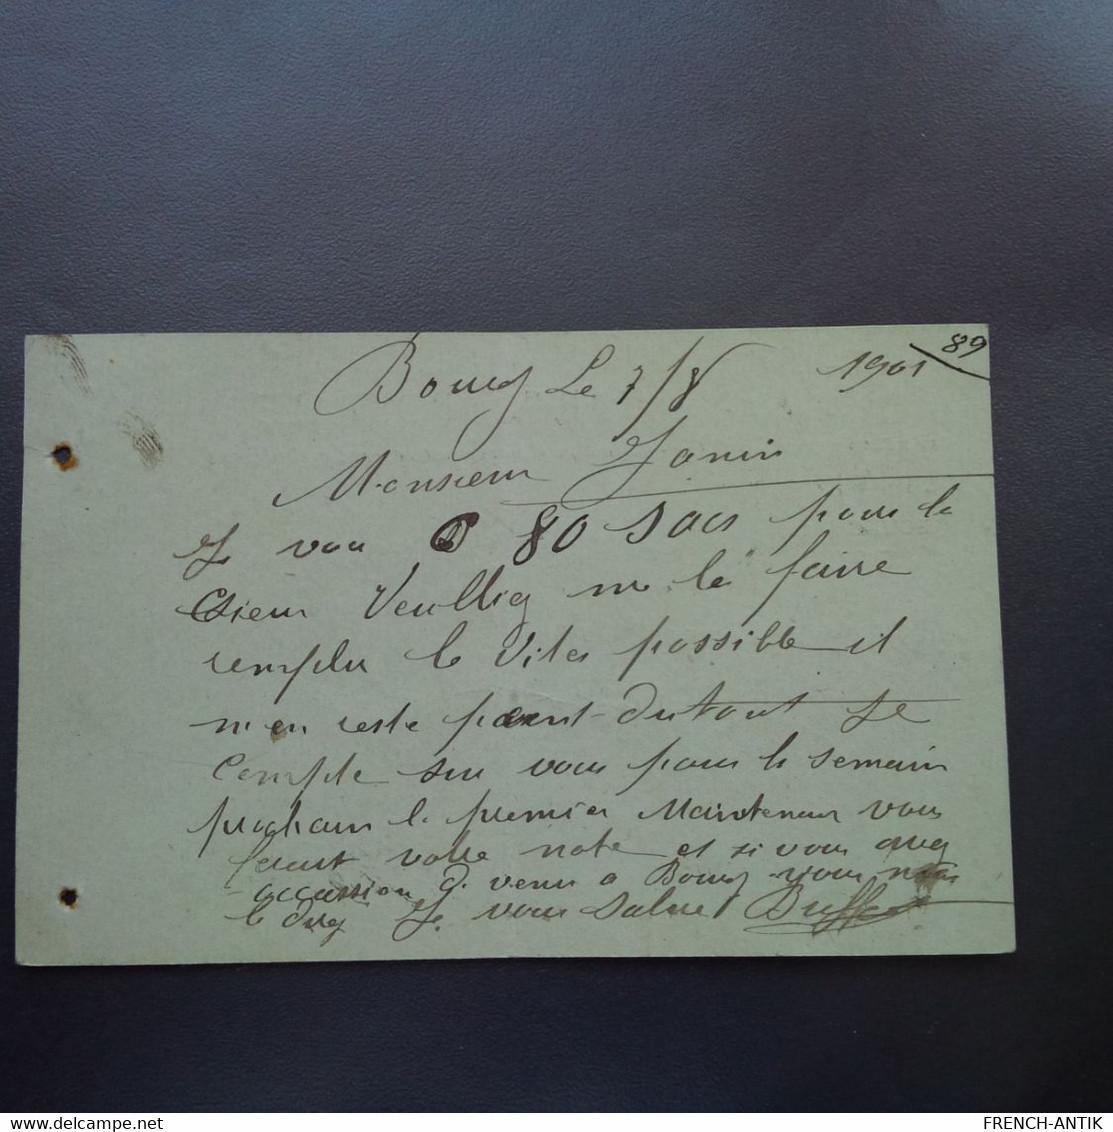 89
Bourg Le 7/8 1901
Monsieur Janin
Je vou 80 Sacs pour la
Veulliez me le faire
remplir le Vites possible il
m en reste point dutout Je
Compte sur vous pour la semain
prochain le premier Maintenan vous
votre note et si vous avez
occassion d venir a Bourg vous
le direz Je vous Salue Buffet
www.delcampe.net
FRENCH-ANTIK